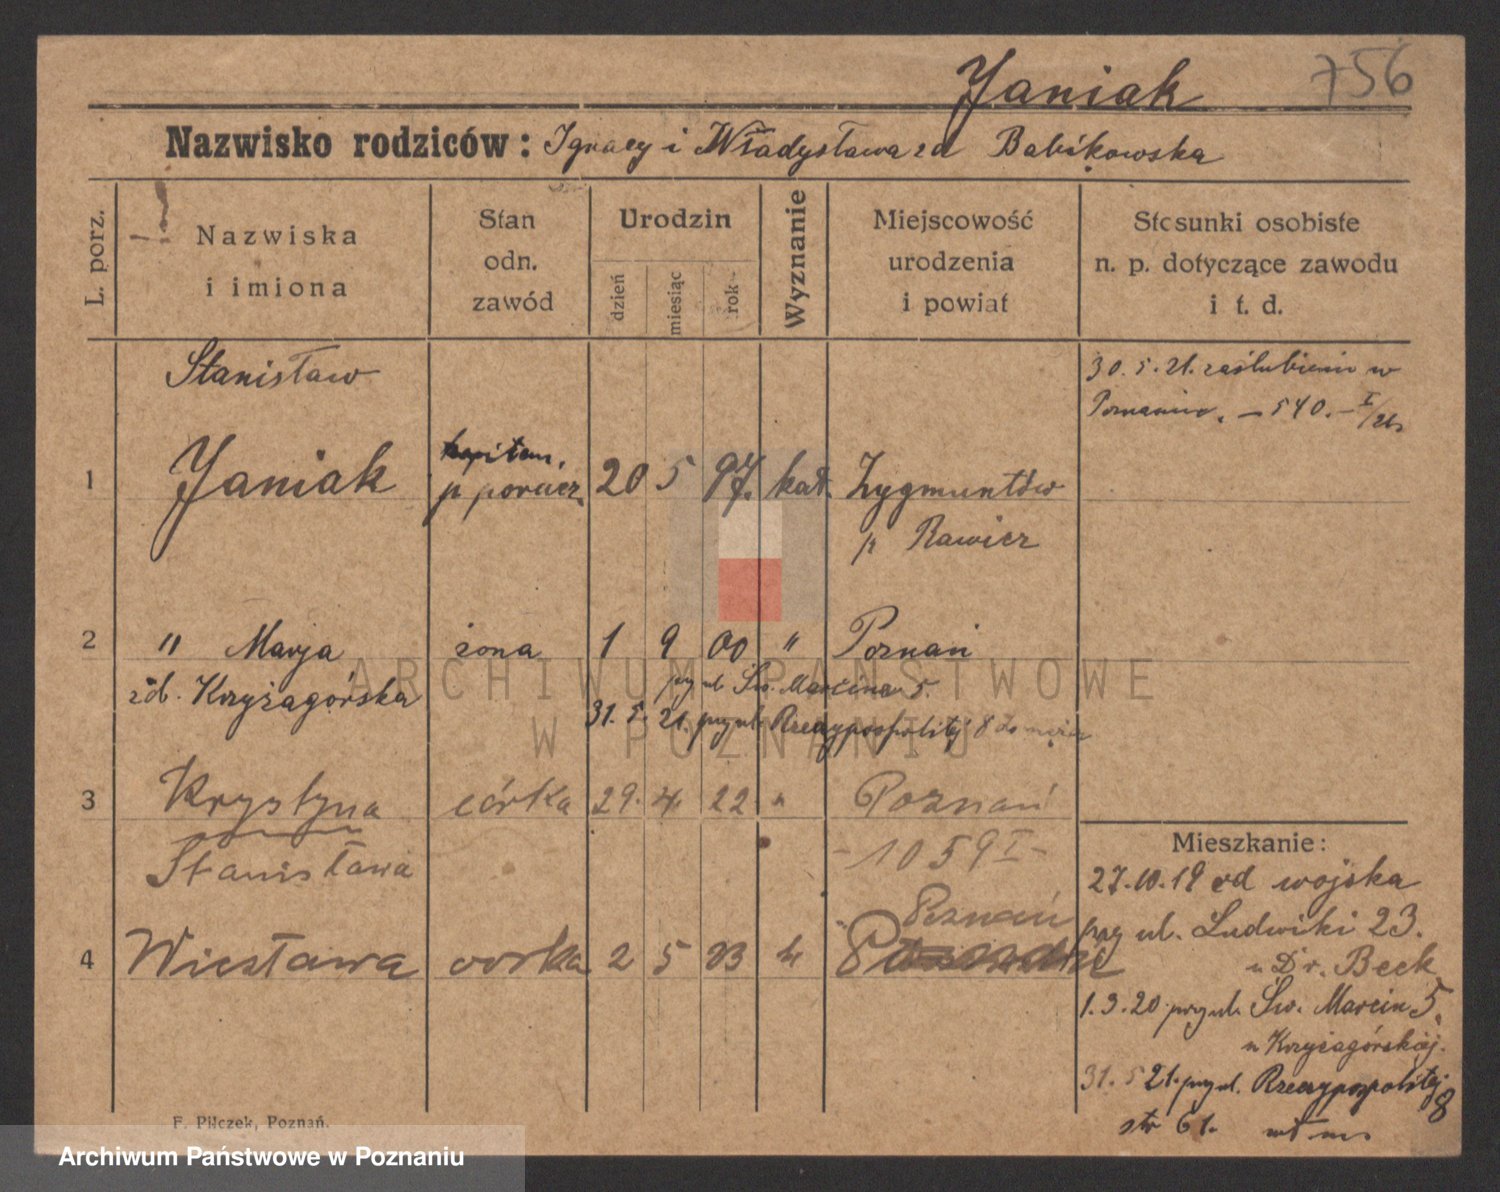 Janiak 756
Nazwisko rodziców: Ignacy i Władysława zd Babikowska
L. porz.
Nazwiska
i imiona
Stan
odn.
zawód
Urodzin
dzień
miesiąc
rok
Wyznanie
Miejscowość
urodzenia
i powiat
Stosunki osobiste
n. p. dotyczące zawodu
i t. d.
Stanisław
30. 5. 21. zaślubieni w
Poznaniu. – 540. – I/21
kapitan,
1 Janiak p porucz. 20 5 97. kat. Zygmuntów
p. Rawicz
2 " Marja żona 1 9 00 " Poznań
zd. Krzyżagórska przy ul. Św. Marcina 5.
31. 5. 21. przy ul. Rzeczypospolitej 8 do męża
3 Krystyna córka 29. 4. 22 " Poznań
Stanisława - 1059 I -
Poznań
4 Wiesława córka 2 5 23 "
Mieszkanie:
27.10.19 od wojska
przy ul. Ludwiki 23.
u Dr. Beck
1.3.20 przy ul. Św. Marcin 5.
u Krzyżagórskiej.
31. 5 21. przy ul. Rzeczypospolitej
8
str 61.
F. Pilczek, Poznań.
ARCHIWUM PAŃSTWOWE
W POZNANIU
Archiwum Państwowe w Poznaniu